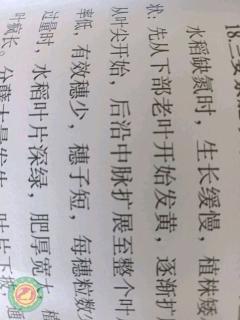 18.三要素
水稻缺氮时，生长缓慢，植株矮
状：先从下部老叶开始发黄，逐渐扩
从叶尖开始，后沿中脉扩展至整个叶
率低，有效穗少，穗子短，每穗粒数
过量时，水稻叶片深绿，肥厚宽大
叶疯长。分蘖大量发生，叶片下